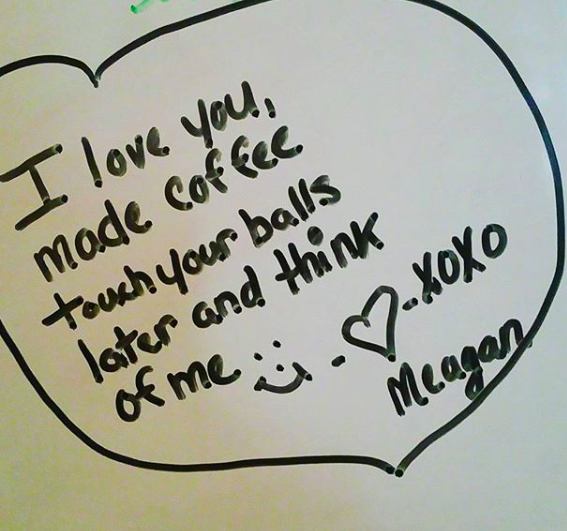 I love you,
made coffee
touch your balls
later and think
of me :) - ♡ - XOXO
Meagan